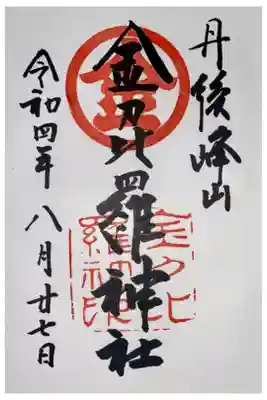 丹後峰山
金刀比羅神社
令和四年八月廿七日
金
金刀比
羅神社